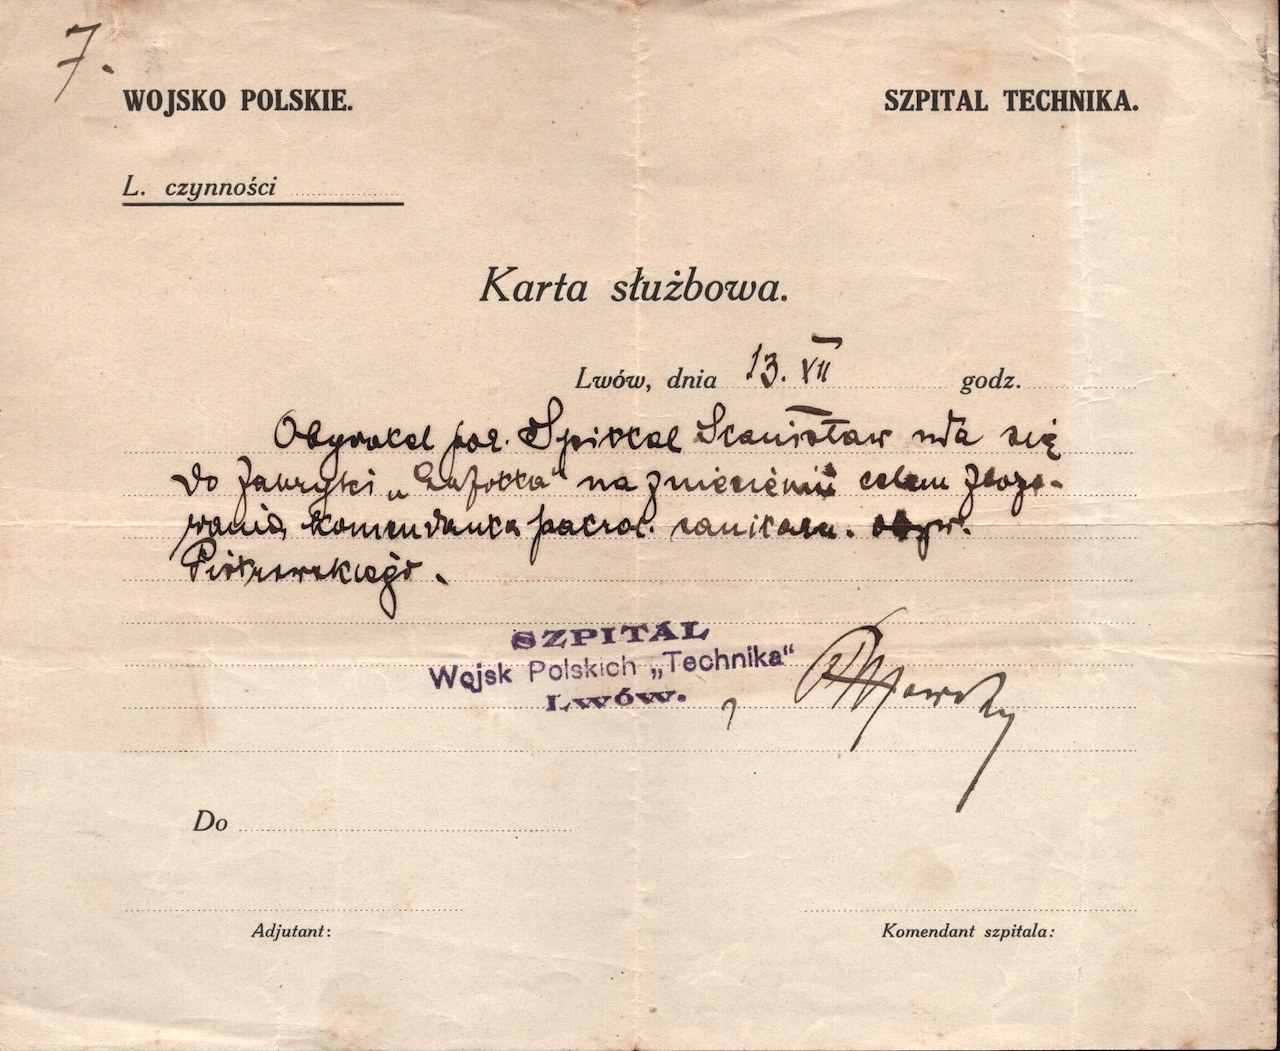 7.
WOJSKO POLSKIE.
SZPITAL TECHNIKA.
L. czynności
Karta służbowa.
Lwów, dnia 13. VII godz.
Obywatel por. Spittal Stanisław uda się
do fabryki „ " na Zniesieniu celem
komendanta patrol. sanitarn. obyw.
Piotrowskiego.
SZPITAL
Wojsk Polskich „Technika"
Lwów.
Do
Adjutant:
Komendant szpitala: